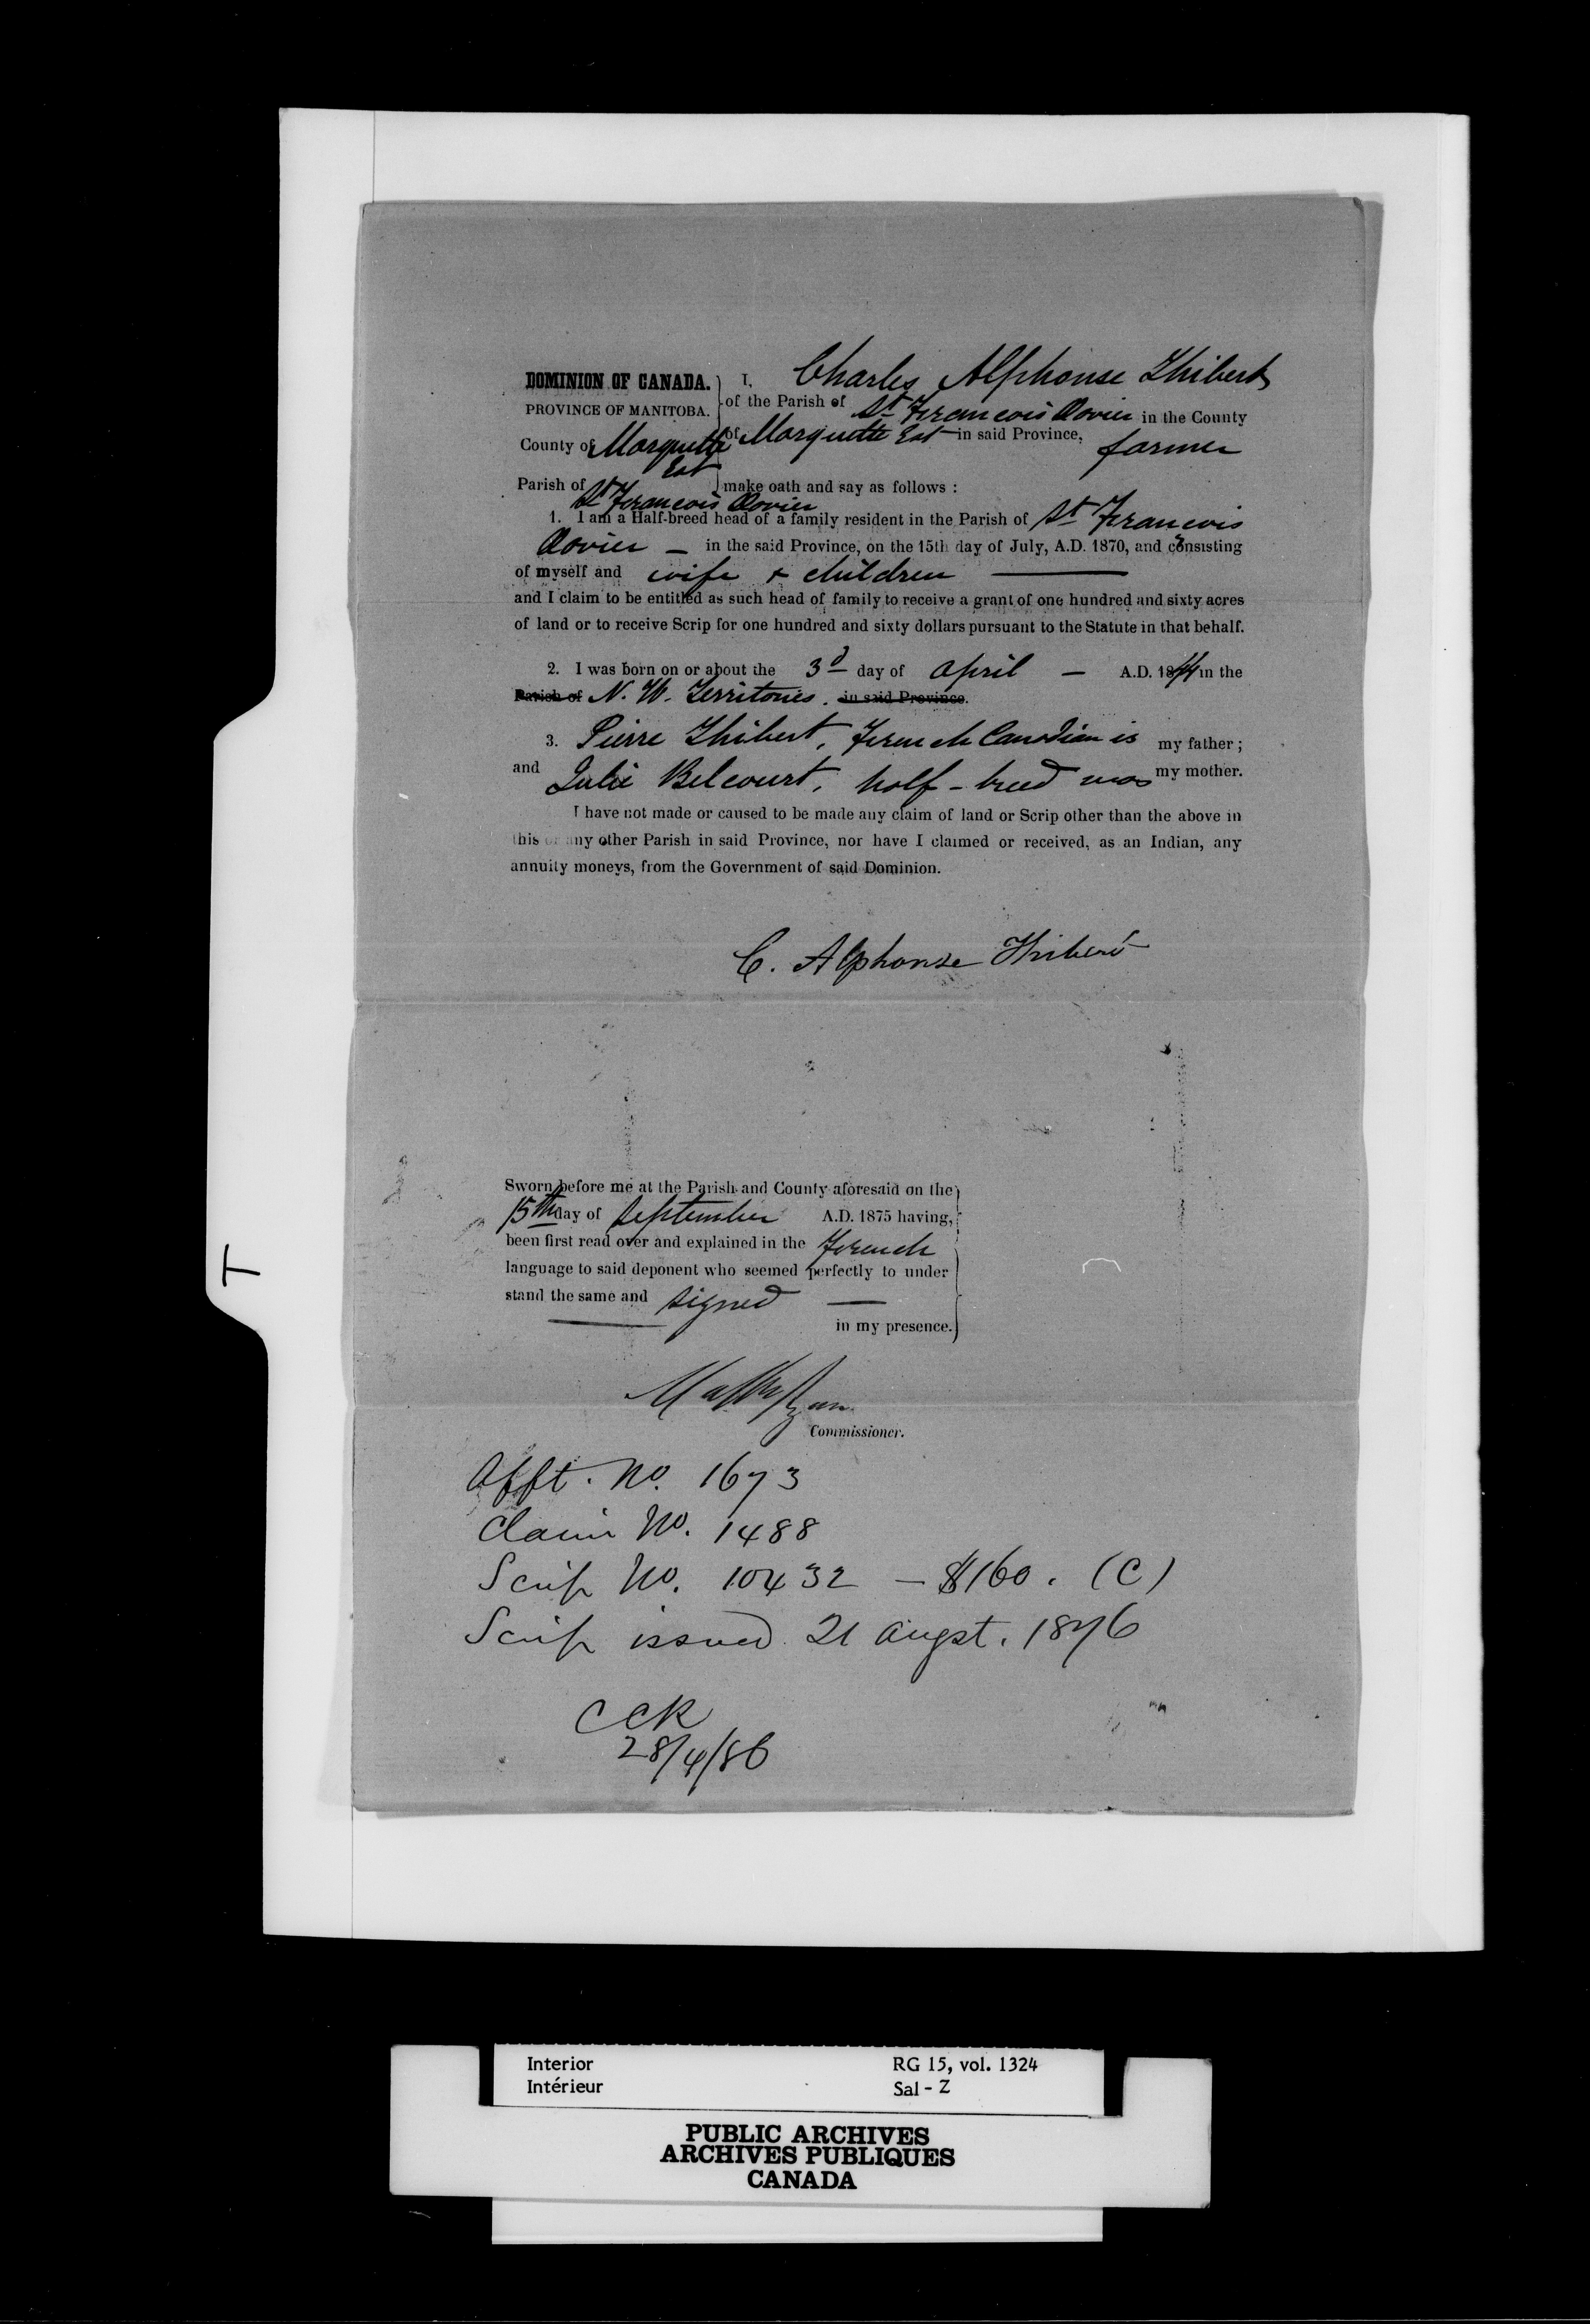 DOMINION OF CANADA. I, Charles Alphonse Thibert
PROVINCE OF MANITOBA. of the Parish of St Francois Xavier in the County
County of Marquette East of Marquette East in said Province, farmer
Parish of St Francois Xavier make oath and say as follows :
1. I am a Half-breed head of a family resident in the Parish of St Francois
Xavier — in the said Province, on the 15th day of July, A.D. 1870, and consisting
of myself and wife & children —
and I claim to be entitled as such head of family to receive a grant of one hundred and sixty acres
of land or to receive Scrip for one hundred and sixty dollars pursuant to the Statute in that behalf.
2. I was born on or about the 3d day of April — A.D. 1844 in the
Parish of N. W. Territories. in said Province.
3. Pierre Thibert, French Canadian is my father ;
and Julie Belcourt, half-breed was my mother.
I have not made or caused to be made any claim of land or Scrip other than the above in
this or any other Parish in said Province, nor have I claimed or received, as an Indian, any
annuity moneys, from the Government of said Dominion.
C. Alphonse Thibert
Sworn before me at the Parish and County aforesaid on the
15th day of September A.D. 1875 having,
been first read over and explained in the French
language to said deponent who seemed perfectly to under
stand the same and signed —
in my presence.
Matt Ryan
Commissioner.
Afft. No. 1673
Claim No. 1488
Scrip No. 10432 — $160. (C)
Scrip issued 21 Augst. 1876
CCR
28/4/86
T
Interior RG 15, vol. 1324
Intérieur Sal - Z
PUBLIC ARCHIVES
ARCHIVES PUBLIQUES
CANADA